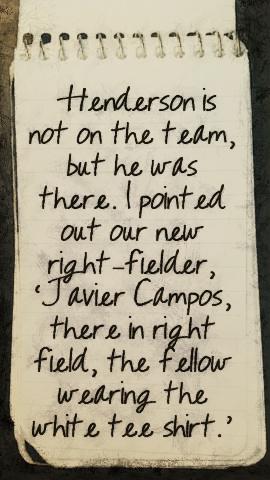 Henderson is
not on the team,
but he was
there. I pointed
out our new
right-fielder,
‘Javier Campos,
there in right
field, the fellow
wearing the
white tee shirt.’